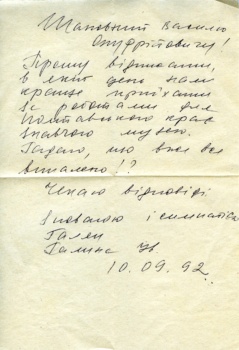 Шановний Василю
Онуфрійовичу!
Прошу відписати,
в який день нам
краще приїхати
за роботами для
Полтавського крає
знавчого музею.
Гадаю, що вже все
висохло!?
Чекаю відповіді.
З повагою і симпатією
Галина
10.09.92